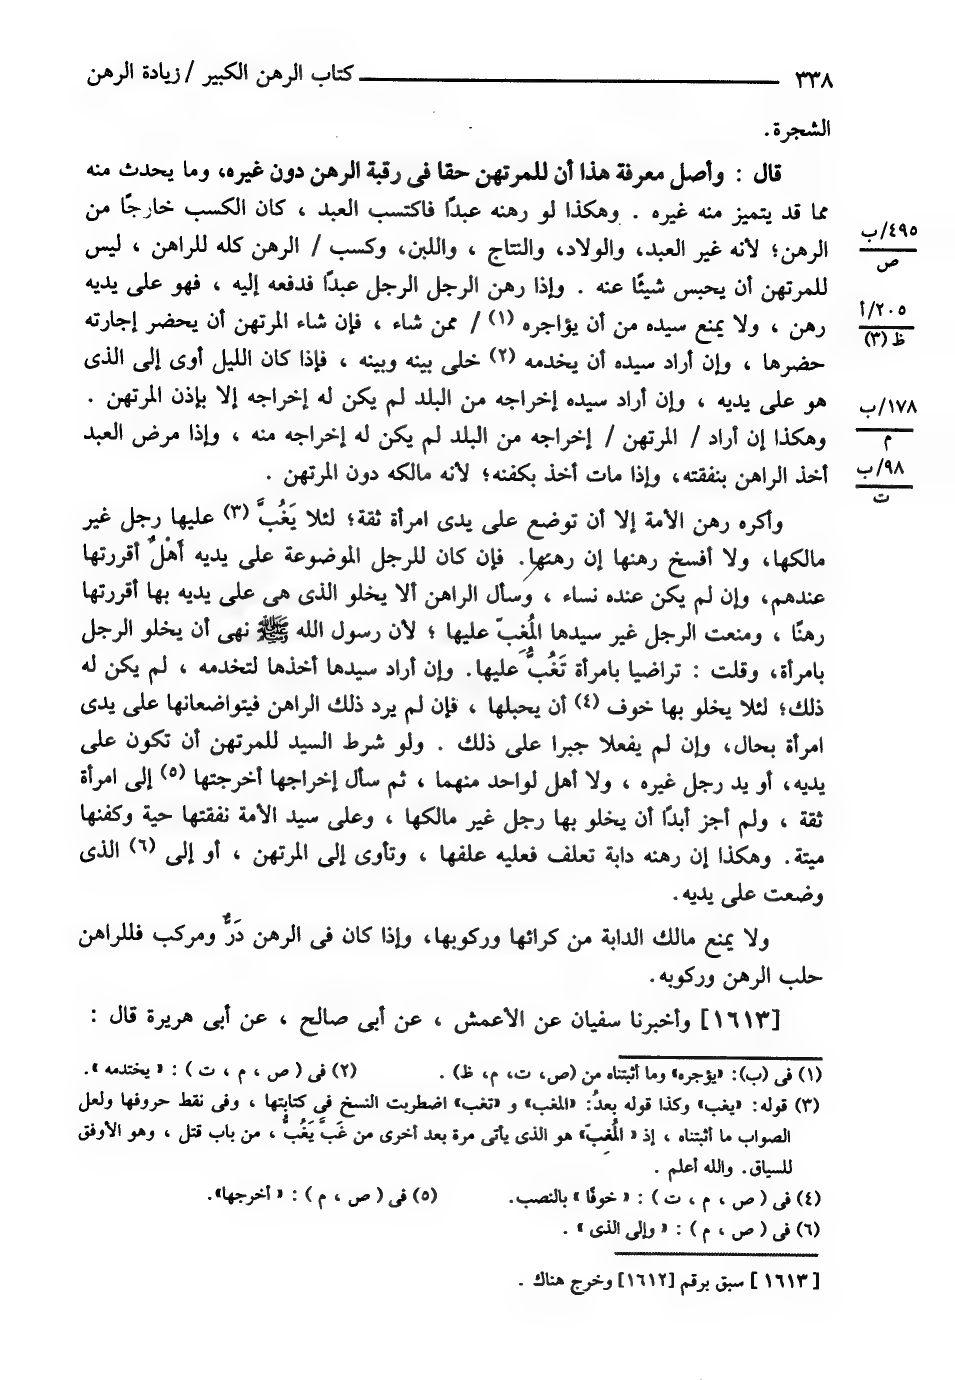 ٣٣٨ كتاب الرهن الكبير / زيادة الرهن
الشجرة.
قال : وأصل معرفة هذا أن للمرتهن حقا فى رقبة الرهن دون غيره، وما يحدث منه
مما قد يتميز منه غيره . وهكذا لو رهنه عبدًا فاكتسب العبد ، كان الكسب خارجًا من
الرهن؛ لأنه غير العبد، والولاد، والنتاج ، واللبن، وكسب / الرهن كله للراهن ، ليس
للمرتهن أن يحبس شيئًا عنه . وإذا رهن الرجل الرجل عبدًا فدفعه إليه ، فهو على يديه
رهن ، ولا يمنع سيده من أن يؤاجره (١) / ممن شاء ، فإن شاء المرتهن أن يحضر إجارته
حضرها ، وإن أراد سيده أن يخدمه (٢) خلى بينه وبينه ، فإذا كان الليل أوى إلى الذى
هو على يديه ، وإن أراد سيده إخراجه من البلد لم يكن له إخراجه إلا بإذن المرتهن .
وهكذا إن أراد / المرتهن / إخراجه من البلد لم يكن له إخراجه منه ، وإذا مرض العبد
أخذ الراهن بنفقته، وإذا مات أخذ بكفنه؛ لأنه مالكه دون المرتهن .
٤٩٥/ب
ص
٢٠٥/أ
ظ (٣)
١٧٨/ب
م
٩٨/ب
ت
وأكره رهن الأمة إلا أن توضع على يدى امرأة ثقة؛ لئلا يَغُبَّ (٣) عليها رجل غير
مالكها، ولا أفسخ رهنها إن رهنها. فإن كان للرجل الموضوعة على يديه أَهْلٌ أقررتها
عندهم، وإن لم يكن عنده نساء ، وسأل الراهن ألا يخلو الذى هى على يديه بها أقررتها
رهنًا ، ومنعت الرجل غير سيدها المُغِبّ عليها ؛ لأن رسول الله ﷺ نهى أن يخلو الرجل
بامرأة، وقلت : تراضيا بامرأة تَغُبُّ عليها. وإن أراد سيدها أخذها لتخدمه ، لم يكن له
ذلك؛ لئلا يخلو بها خوف (٤) أن يحبلها ، فإن لم يرد ذلك الراهن فيتواضعانها على يدى
امرأة بحال، وإن لم يفعلا جبرا على ذلك . ولو شرط السيد للمرتهن أن تكون على
يديه، أو يد رجل غيره ، ولا أهل لواحد منهما ، ثم سأل إخراجها أخرجتها (٥) إلى امرأة
ثقة ، ولم أجز أبدًا أن يخلو بها رجل غير مالكها ، وعلى سيد الأمة نفقتها حية وكفنها
ميتة. وهكذا إن رهنه دابة تعلف فعليه علفها ، وتأوى إلى المرتهن ، أو إلى (٦) الذى
وضعت على يديه.
ولا يمنع مالك الدابة من كرائها وركوبها، وإذا كان فى الرهن دَرٌّ ومركب فللراهن
حلب الرهن وركوبه.
[١٦١٣] وأخبرنا سفيان عن الأعمش ، عن أبى صالح ، عن أبى هريرة قال :
(١) فى (ب): «يؤجره» وما أثبتناه من (ص، ت، م، ظ) . (٢) فى ( ص ، م ، ت ) : « يختدمه ».
(٣) قوله: «يغب» وكذا قوله بعدُ: «المغب» و «تغب» اضطربت النسخ فى كتابتها ، وفى نقط حروفها ولعل
الصواب ما أثبتناه ، إذ « المُغِبّ» هو الذى يأتى مرة بعد أخرى من غَبَّ يَغُبُّ ، من باب قتل ، وهو الأوفق
للسياق. والله أعلم .
(٤) فى ( ص ، م ، ت ) : « خوفًا » بالنصب. (٥) فى ( ص ، م ) : « أخرجها».
(٦) فى ( ص ، م ) : « وإلى الذى » .
[١٦١٣] سبق برقم [١٦١٢] وخرج هناك .